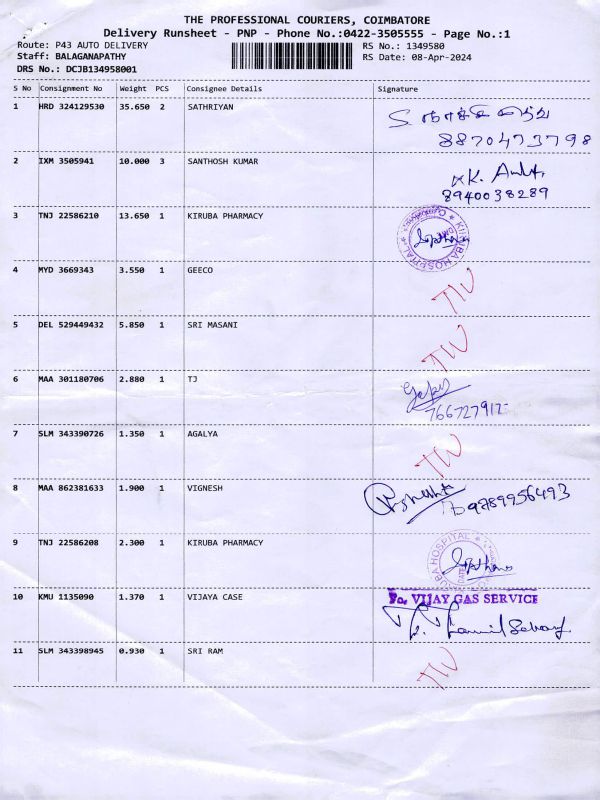 THE PROFESSIONAL COURIERS, COIMBATORE
Delivery Runsheet - PNP - Phone No.:0422-3505555 - Page No.:1
Route: P43 AUTO DELIVERY RS No.: 1349580
Staff: BALAGANAPATHY RS Date: 08-Apr-2024
DRS No.: DCJB134958001
S No Consignment No Weight PCS Consignee Details Signature
1 HRD 324129530 35.650 2 SATHRIYAN
8870473798
2 IXM 3505941 10.000 3 SANTHOSH KUMAR
8940038289
3 TNJ 22586210 13.650 1 KIRUBA PHARMACY
KIRUBA HOSPITAL
4 MYD 3669343 3.550 1 GEECO
TW
5 DEL 529449432 5.850 1 SRI MASANI
TW
6 MAA 301180706 2.880 1 TJ
766727912
7 SLM 343390726 1.350 1 AGALYA
TW
8 MAA 862381633 1.900 1 VIGNESH
9789956493
9 TNJ 22586208 2.300 1 KIRUBA PHARMACY
KIRUBA HOSPITAL
10 KMU 1135090 1.370 1 VIJAYA CASE
For VIJAY GAS SERVICE
11 SLM 343398945 0.930 1 SRI RAM
TW